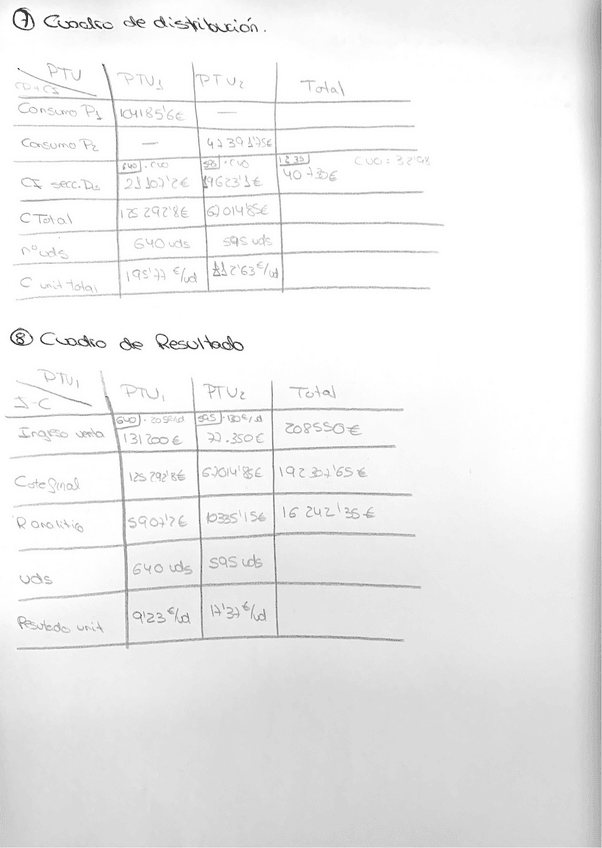 ⑦ Cuadro de distribución.
PTU PTU1 PTU2 Total
CD+CI
Consumo P1 104185'6€ —
Consumo P2 — 47391'75€
640 · CUO 595 · CUO 1235 CUO: 32'98
CI secc. Dis 21107'2€ 19623'1€ 40730€
C Total 125292'8€ 67014'85€
nº uds 640 uds 595 uds
C unit total 195'77 €/ud 112'63 €/ud
⑧ Cuadro de Resultado
PTU1 PTU1 PTU2 Total
I-C
640 · 205€/ud 595 · 130€/ud
Ingreso venta 131200€ 77.350€ 208550€
Coste final 125292'8€ 67014'85€ 192307'65€
R analítico 5907'2€ 10335'15€ 16242'35€
uds 640 uds 595 uds
Resultado unit 9'23 €/ud 17'37 €/ud